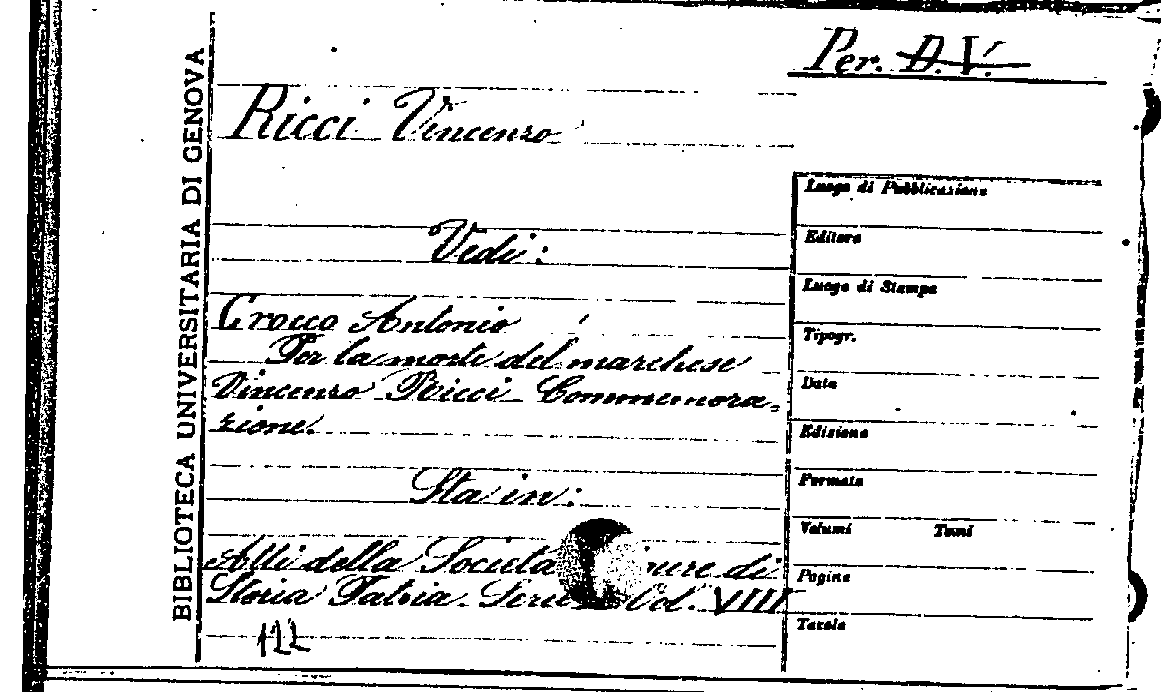 Per. D.V.
BIBLIOTECA UNIVERSITARIA DI GENOVA
Ricci Vincenzo
Vedi:
Crocco Antonio
Per la morte del marchese
Vincenzo Ricci Commemora-
zione.
Sta in:
Atti della Societa nure di
Storia Patria. Serie Vol. VIII
122
Luogo di Pubblicazione
Editore
Luogo di Stampa
Tipogr.
Data
Edizione
Formato
Volumi Tomi
Pagine
Tavole